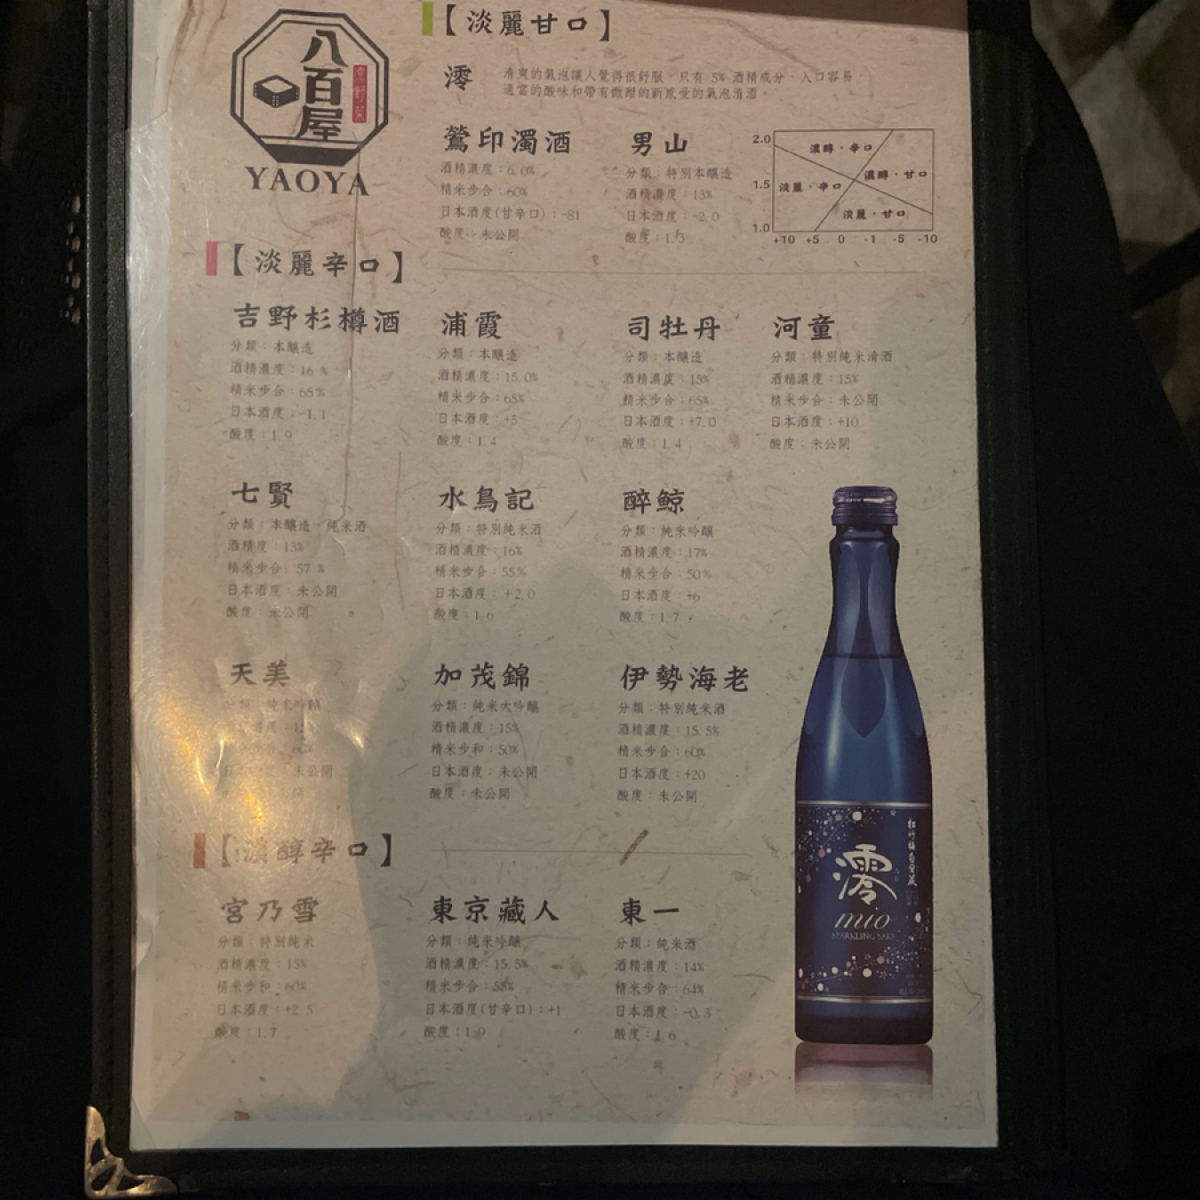 八百屋
YAOYA
【淡麗甘口】
澪
清爽的氣泡讓人覺得很舒服,只有 5% 酒精成分,入口容易,
適當的酸味和帶有微甜的新感受的氣泡清酒。
鶯印濁酒
酒精濃度:6.0%
精米步合:60%
日本酒度(甘辛口):-81
酸度:未公開
男山
分類:特別本釀造
酒精濃度:13%
日本酒度:-2.0
酸度:1.3
2.0
1.5
1.0
濃醇・辛口
濃醇・甘口
淡麗・辛口
淡麗・甘口
+10 +5 0 -1 -5 -10
【淡麗辛口】
吉野杉樽酒
分類:本釀造
酒精濃度:16 %
精米步合:65%
日本酒度:-1.1
酸度:1.9
浦霞
分類:本釀造
酒精濃度:15.0%
精米步合:65%
日本酒度:+5
酸度:1.4
司牡丹
分類:本釀造
酒精濃度:15%
精米步合:65%
日本酒度:+7.0
酸度:1.4
河童
分類:特別純米清酒
酒精濃度:15%
精米步合:未公開
日本酒度:+10
酸度:未公開
七賢
分類:本釀造 純米酒
酒精度:13%
精米步合:57 %
日本酒度:未公開
酸度:未公開
水鳥記
分類:特別純米酒
酒精濃度:16%
精米步合:55%
日本酒度:+2.0
酸度:1.6
醉鯨
分類:純米吟釀
酒精濃度:17%
精米步合:50%
日本酒度:+6
酸度:1.7
天美
分類:純米吟釀
日本酒度:未公開
加茂錦
分類:純米大吟釀
酒精濃度:15%
精米步和:50%
日本酒度:未公開
酸度:未公開
伊勢海老
分類:特別純米酒
酒精濃度:15.5%
精米步合:60%
日本酒度:+20
酸度:未公開
【濃醇辛口】
宮乃雪
分類:特別純米
酒精濃度:15%
精米步和:60%
日本酒度:+2.5
酸度:1.7
東京藏人
分類:純米吟釀
酒精濃度:15.5%
精米步合:55%
日本酒度(甘辛口):+1
酸度:1.9
東一
分類:純米酒
酒精濃度:14%
精米步合:64%
日本酒度:-0.3
酸度:1.6
松竹梅白壁蔵
澪
mio
SPARKLING SAKE